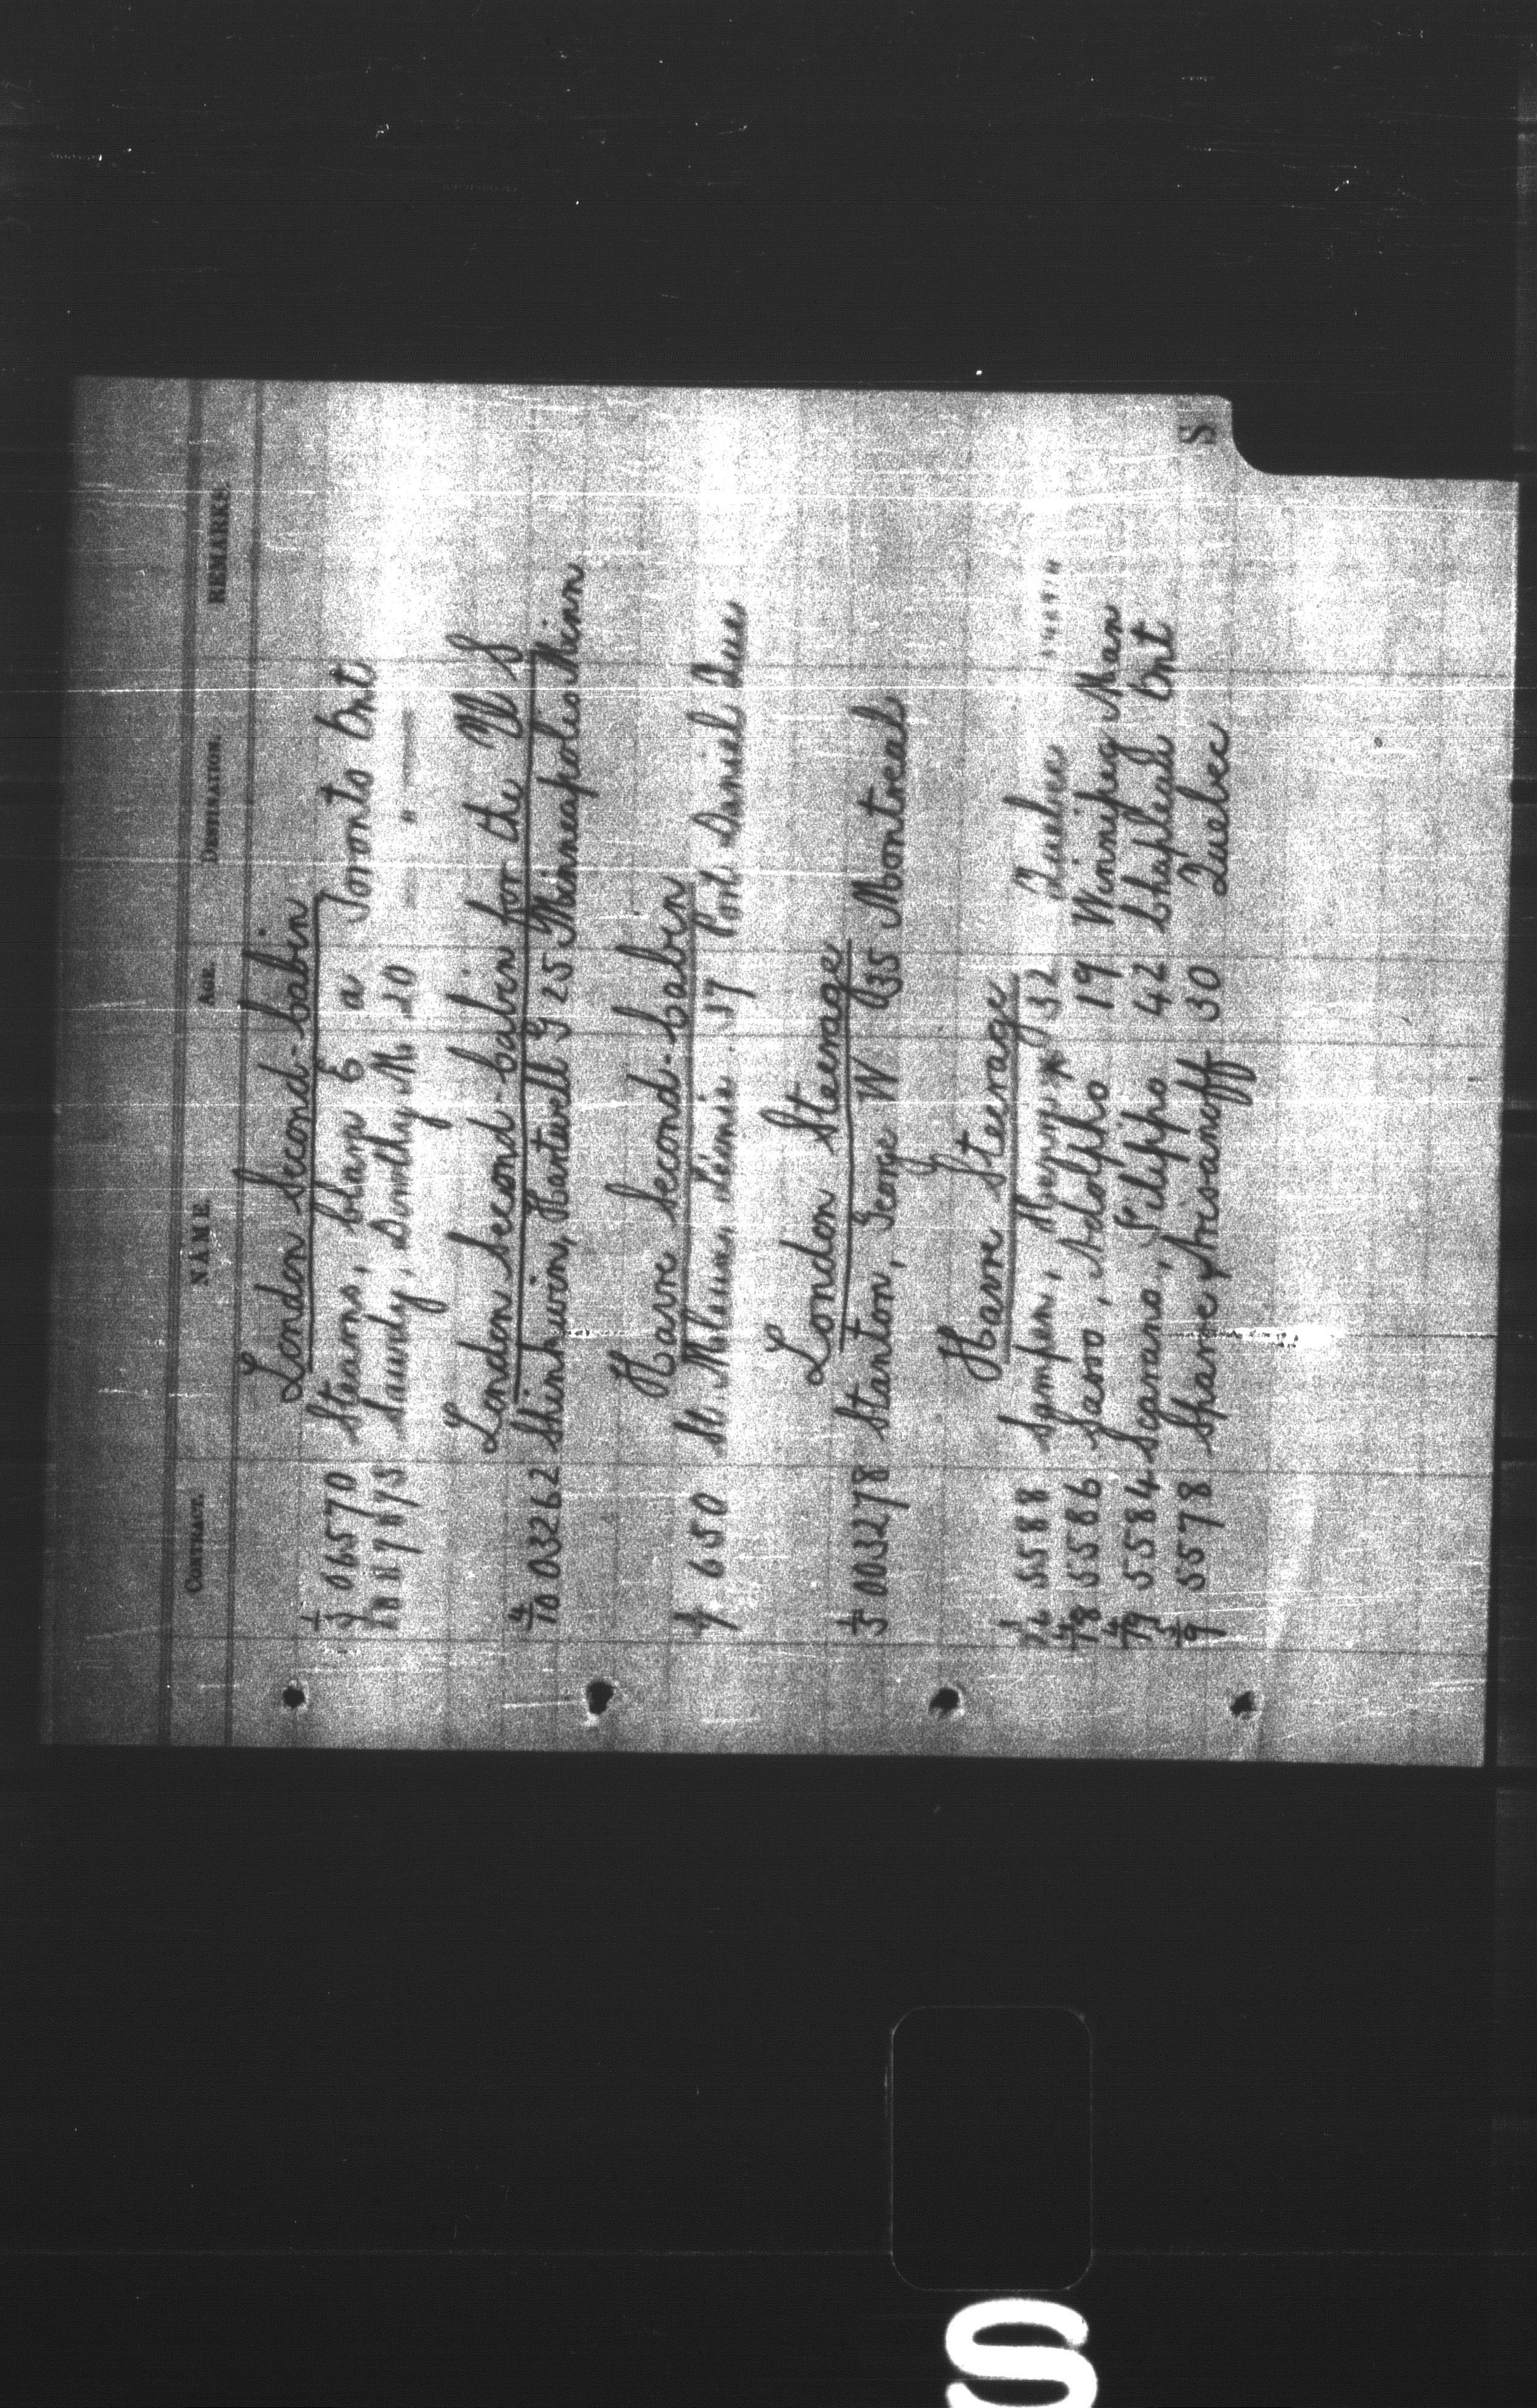 CONTRACT. NAME. AGE. DESTINATION. REMARKS.
London Second-Cabin
1/3 06570 Stearns, Cham E a Toronto Ont
Dorothy M. 20 "
London Second-Cabin for the U S
4/10 003262 Shinkwin, Hartwell G 25 Minneapolis Minn
Havre Second-Cabin
650 St. 37 Port Daniel Que
London Steerage
1/3 003278 Stanton, George W 35 Montreal
Havre Steerage
5588 32 Quebec
4/18 5586 Sasso, Adolpho 19 Winnipeg Man
4/19 5584 Scarano, Filippo 42 Chapleau Ont
5578 30 Quebec
S
S